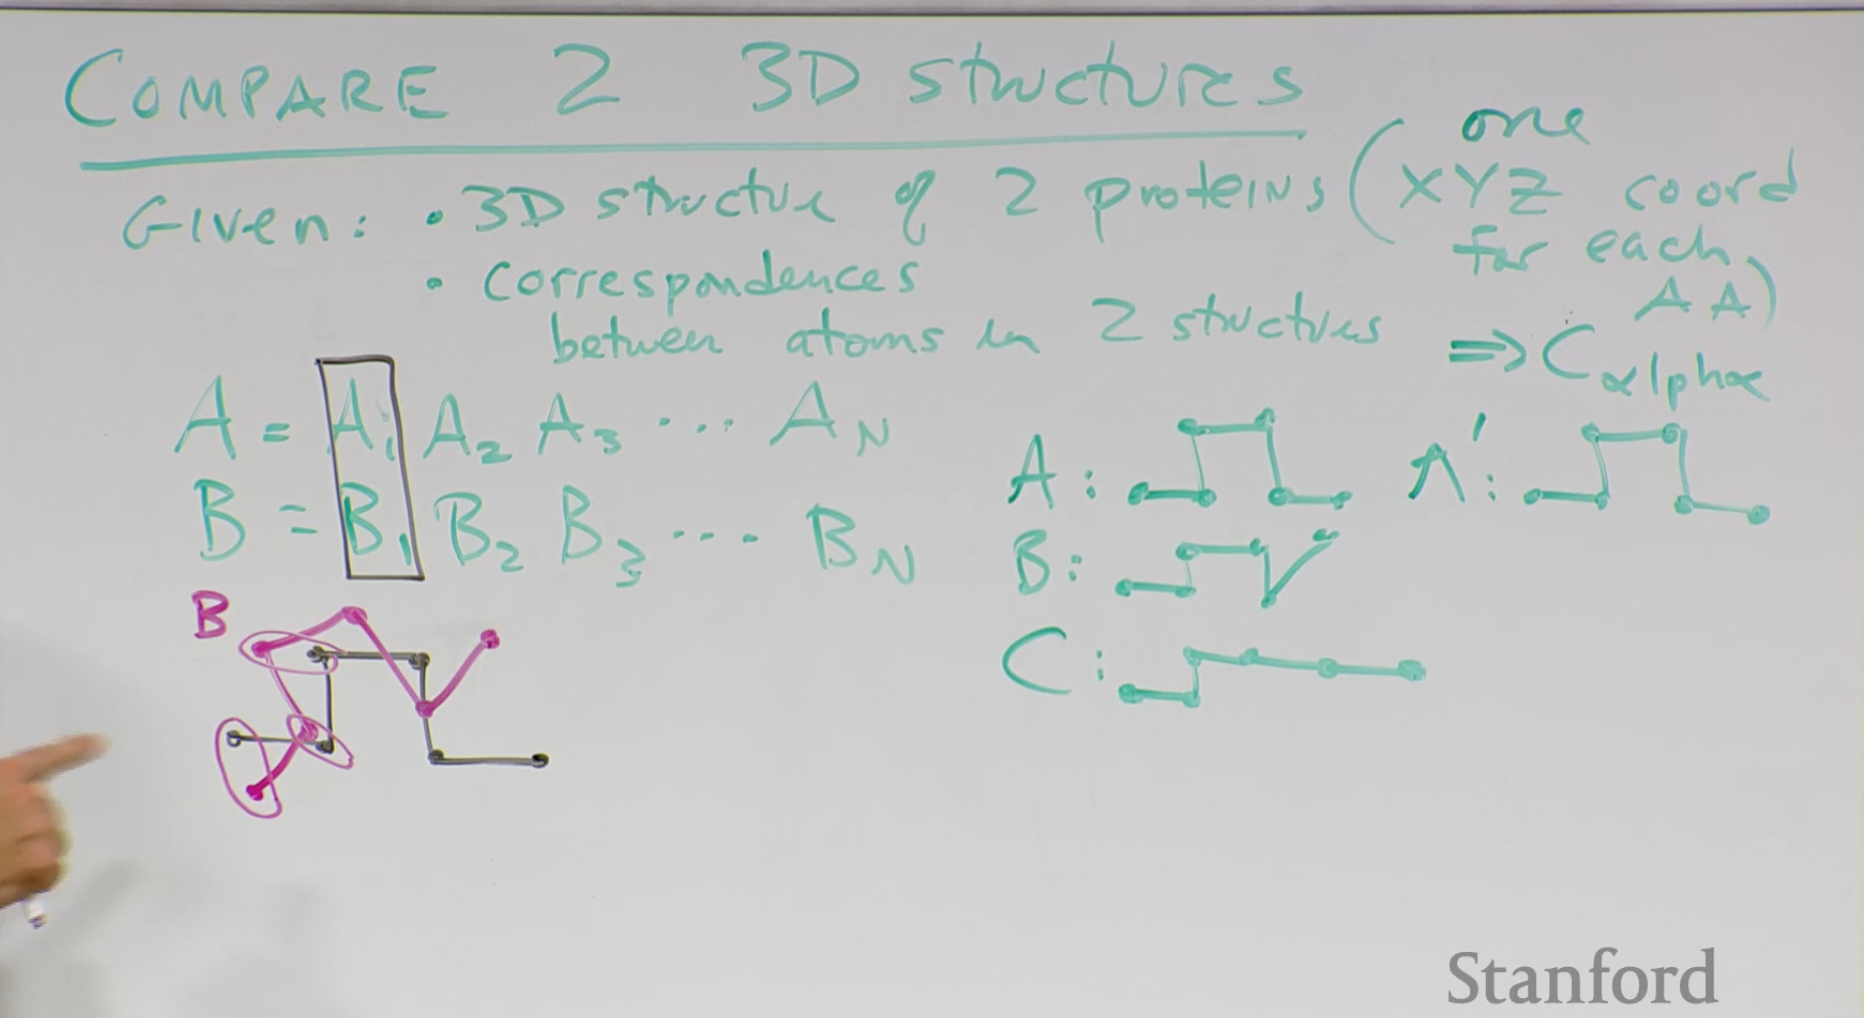 COMPARE 2 3D structures
Given: • 3D structure of 2 proteins (one
XYZ coord
for each
AA)
• correspondences
between atoms in 2 structures ⇒ C alpha
A = A1 A2 A3 ... AN
B = B1 B2 B3 ... BN
A:
A':
B:
C:
B
Stanford